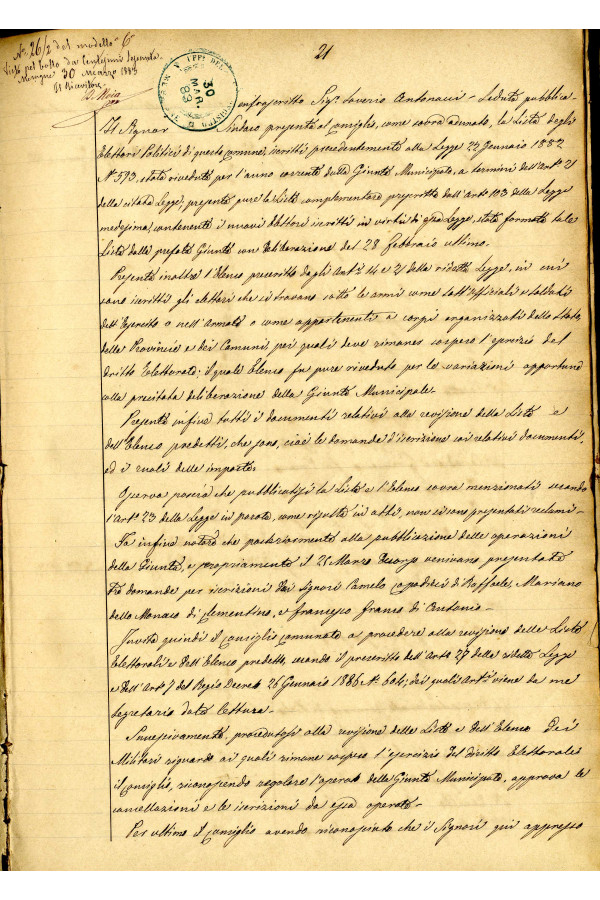 N.° 26/2 del modello 6°
Visto pel bollo da Centesimi Sessanta
30 Marzo 1883
Il Ricevitore
21
30
MAR
83
infrascritto Sig.r Saverio Antonacci – Seduta pubblica –
Il Signor Sindaco presenta al Consiglio, come sovra adunato, la Lista degli
Elettori Politici di questo Comune, iscritti precedentemente alla Legge 22 Gennaio 1882
N.° 593, stata riveduta per l'anno corrente dalla Giunta Municipale, a termini dell'Art.° 21
della citata Legge; presenta pure la Lista complementare prescritta dall'art.° 103 della Legge
medesima, contenente i nuovi Elettori iscritti in virtù di essa Legge, stata formata tale
Lista dalla prefata Giunta con deliberazione del 28 Febbraio ultimo.
Presenta inoltre l'Elenco prescritto dagli Art.i 14 e 21 della ridetta Legge, in cui
sono iscritti gli elettori che si trovano sotto le armi come sott'Uffiziali e soldati
dell'Esercito o nell'Armata o come appartenenti a corpi organizzati dello Stato,
delle Provincie e dei Comuni, pei quali deve rimaner sospeso l'esercizio del
dritto Elettorale; il quale Elenco fu pure riveduto per le variazioni opportune
alla precitata deliberazione della Giunta Municipale –
Presenta infine tutti i documenti relativi alla revisione della Lista e
dell'Elenco predetti, che sono, cioè le domande d'iscrizione coi relativi documenti,
ed i ruoli delle imposte.
Osserva poscia che pubblicatisi la Lista e l'Elenco sovra menzionati secondo
l'art.° 23 della Legge in parola, come risulta in atti, non si son presentati reclami –
Fa infine notare che posteriormente alla pubblicazione delle operazioni
della Giunta, e propriamente il 21 Marzo scorso venivano presentate
tre domande per iscrizioni dai Signori Camelo di Raffaele, Mariano
della Monaco di Clementino, e Francesco Franco di Antonio –
Invita quindi il Consiglio comunale a procedere alla revisione delle Liste
Elettorali e dell'Elenco predetto, secondo il prescritto dell'Art.° 27 della ridetta Legge
e dell'Art.° 7 del Regio Decreto 26 Gennaio N.° 604; dei quali Art.i viene da me
Segretario data lettura –
Successivamente, procedutosi alla revisione delle Liste e dell'Elenco dei
Militari riguardo ai quali rimane sospeso l'esercizio del diritto Elettorale
il Consiglio, riconoscendo regolare l'operato della Giunta Municipale, approva le
cancellazioni e le iscrizioni da essa operate –
Per ultimo il Consiglio avendo riconosciuto che i Signori qui appresso